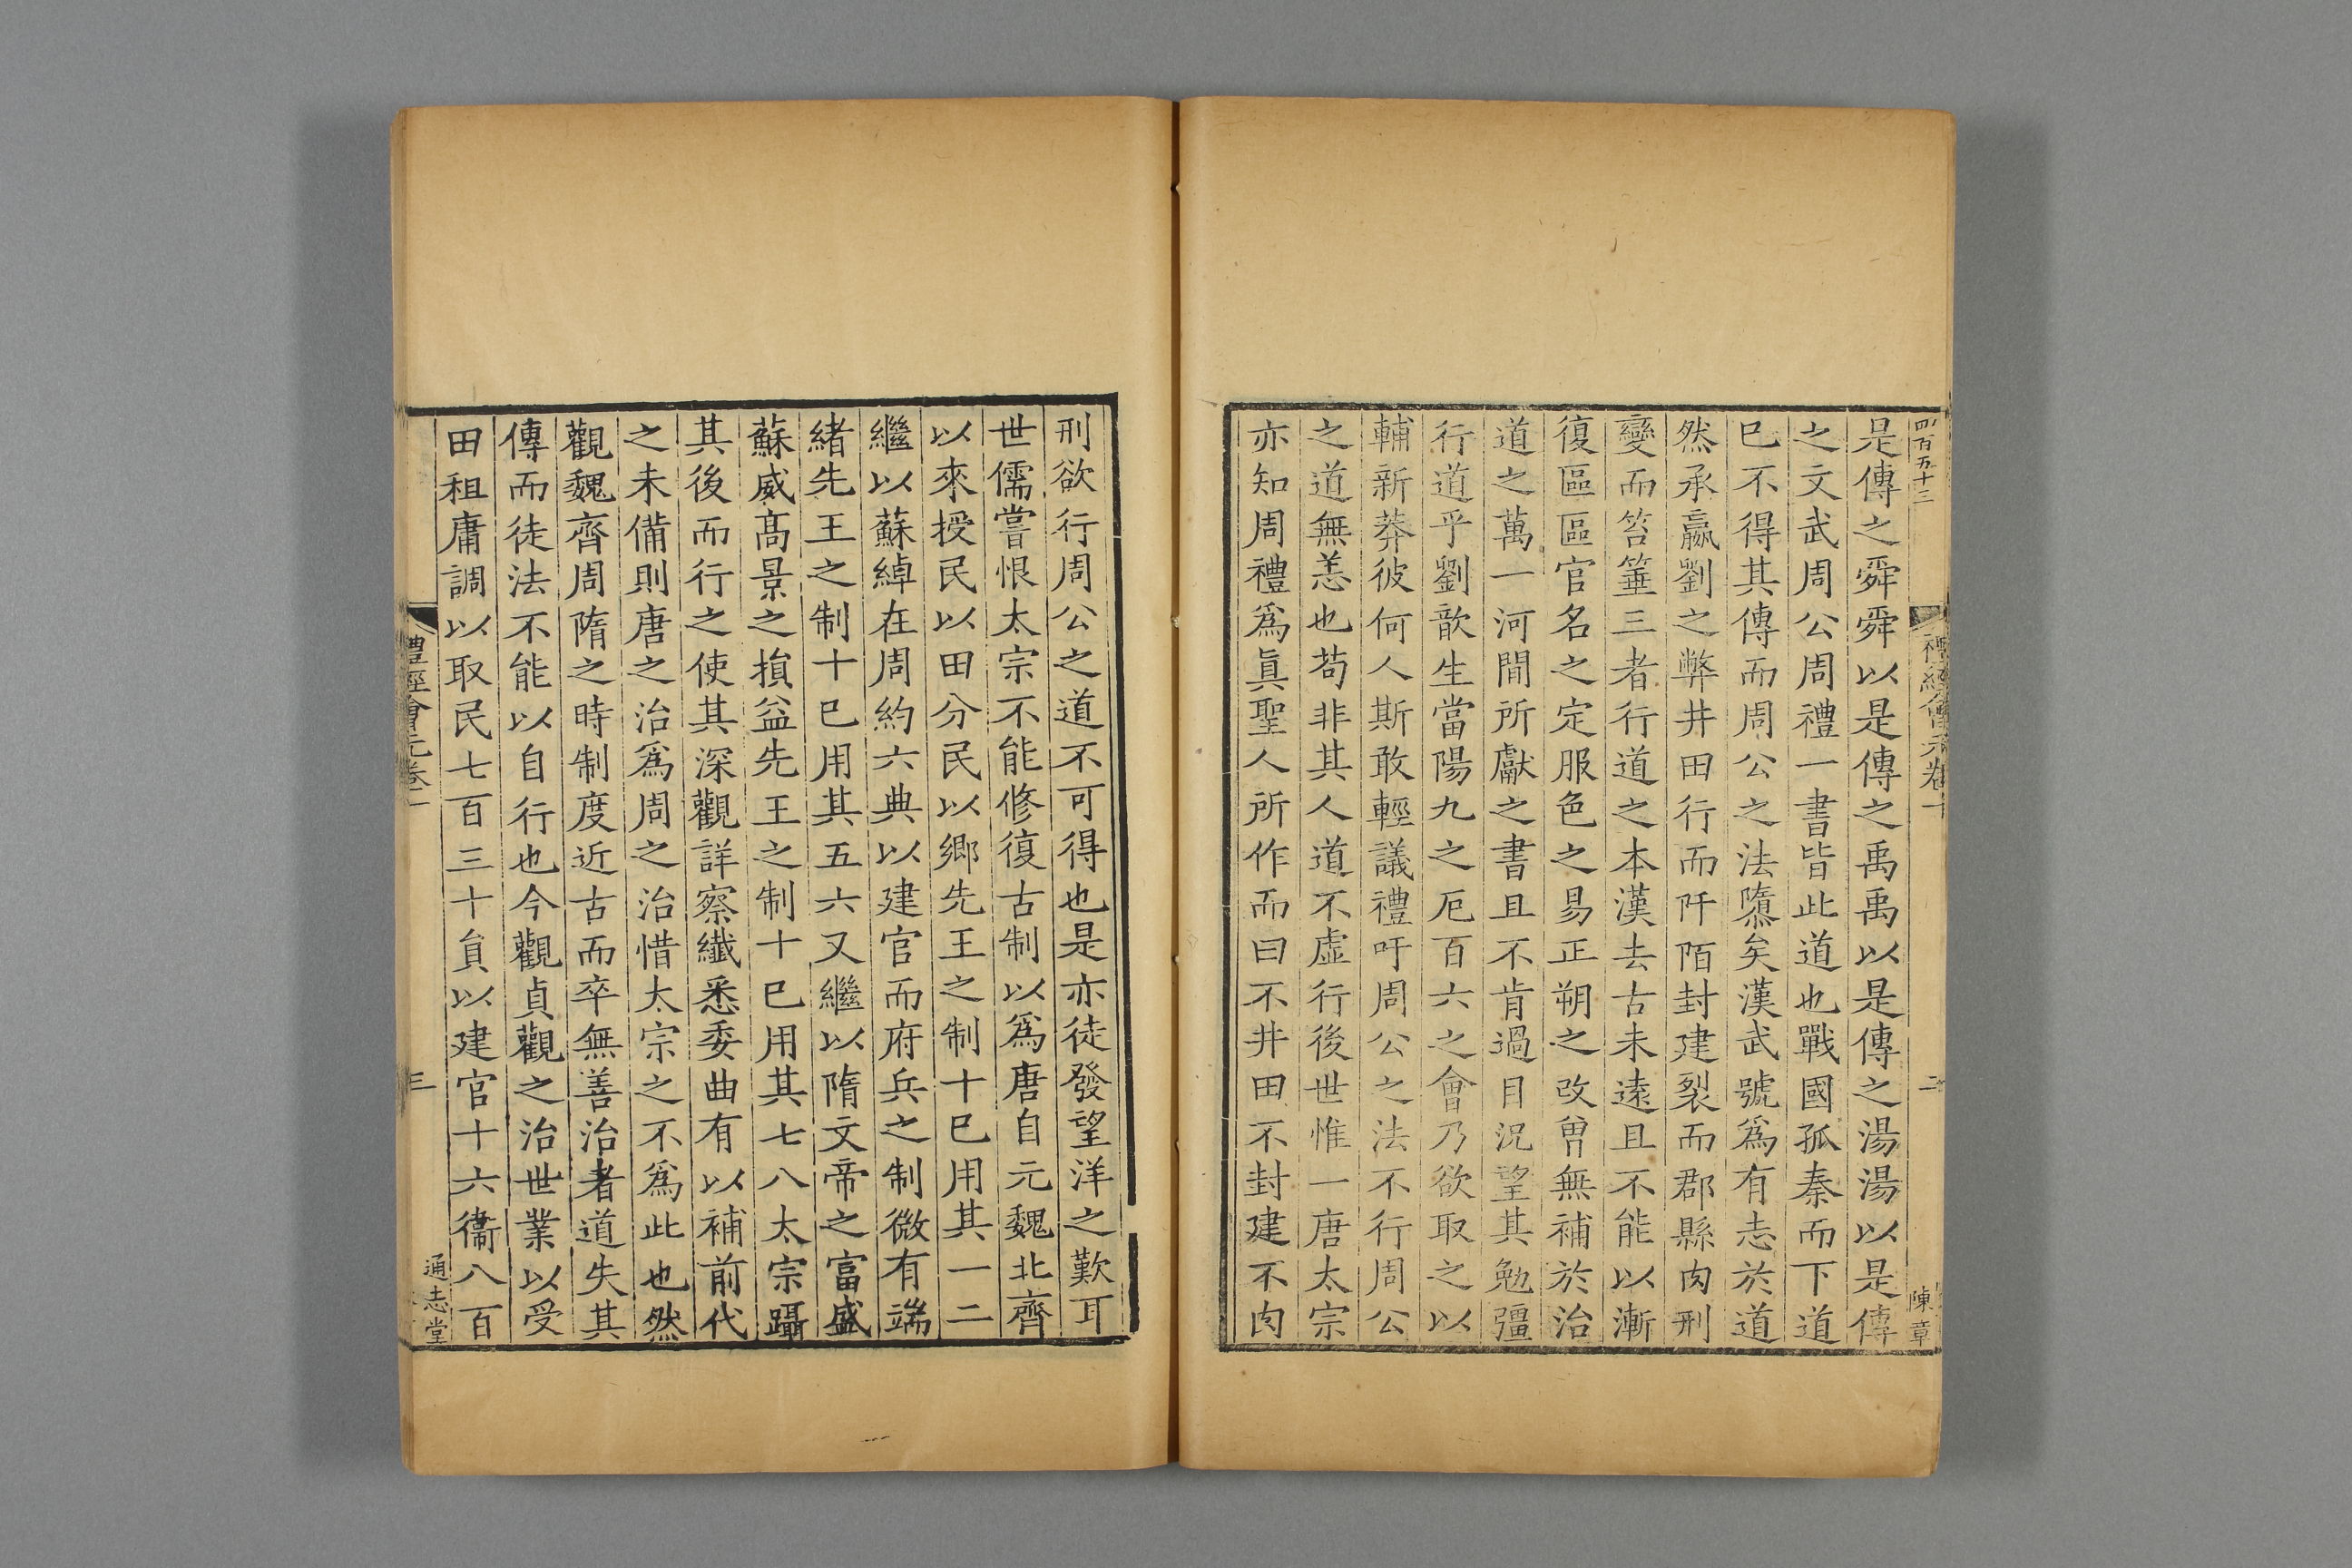 四百五十三
禮經會元卷一
二
陳章
是傳之舜舜以是傳之禹禹以是傳之湯湯以是傳
之文武周公周禮一書皆此道也戰國孤秦而下道
巳不得其傳而周公之法隳矣漢武號爲有志於道
然承嬴劉之弊井田行而阡陌封建裂而郡縣肉刑
變而笞箠三者行道之本漢去古未遠且不能以漸
復區區官名之定服色之易正朔之改曾無補於治
道之萬一河間所獻之書且不肯過目況望其勉彊
行道乎劉歆生當陽九之厄百六之會乃欲取之以
輔新莽彼何人斯敢輕議禮吁周公之法不行周公
之道無恙也苟非其人道不虛行後世惟一唐太宗
亦知周禮爲眞聖人所作而曰不井田不封建不肉
刑欲行周公之道不可得也是亦徒發望洋之歎耳
世儒嘗恨太宗不能修復古制以爲唐自元魏北齊
以來授民以田分民以鄉先王之制十巳用其一二
繼以蘇綽在周約六典以建官而府兵之制微有端
緒先王之制十巳用其五六又繼以隋文帝之富盛
蘇威高景之損益先王之制十巳用其七八太宗躡
其後而行之使其深觀詳察纎悉委曲有以補前代
之未備則唐之治爲周之治惜太宗之不爲此也然
觀魏齊周隋之時制度近古而卒無善治者道失其
傳而徒法不能以自行也今觀貞觀之治世業以受
田租庸調以取民七百三十貟以建官十六衞八百
禮經會元卷一
三
通志堂